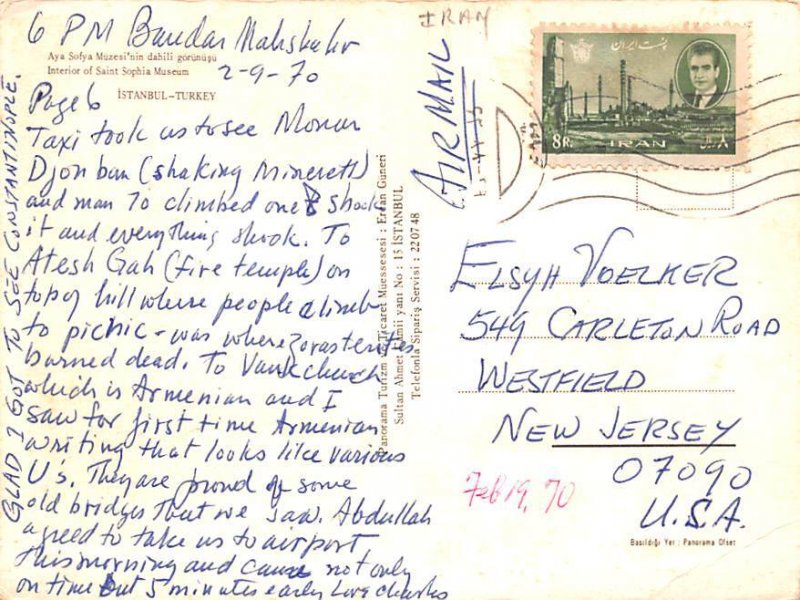 6 PM Bandar Mahshahr
Aya Sofya Müzesi'nin dahili görünüşü
Interior of Saint Sophia Museum
2-9-70
İSTANBUL-TURKEY
Page 6
Taxi took us to see Monar
Djonban (shaking Minerett)
and man 70 climbed one & shook
it and everything shook. To
Atesh Gah (fire temple) on
top of hill where people climb
to picnic - was where zorasterites
burned dead. To Vank church
which is Armenian and I
saw for first time Armenian
writing that looks like various
U's. They are proud of some
old bridges that we saw. Abdullah
agreed to take us to airport
this morning and came not only
on time but 5 minutes early Love Charles
GLAD I GOT TO SEE CONSTANTINOPLE.
Panorama Turizm ve Ticaret Muessesesi : Erkan Güneri
Sultan Ahmet Camii yanı No : 15 İSTANBUL
Telefonla Sipariş Servisi : 22 07 48
IRAN
AIR MAIL
پست ایران
8R.
IRAN
۸ ریال
ELSYH VOELKER
549 CARLETON ROAD
WESTFIELD
NEW JERSEY
07090
U.S.A.
Feb 19, 70
Basıldığı Yer : Panorama Ofset